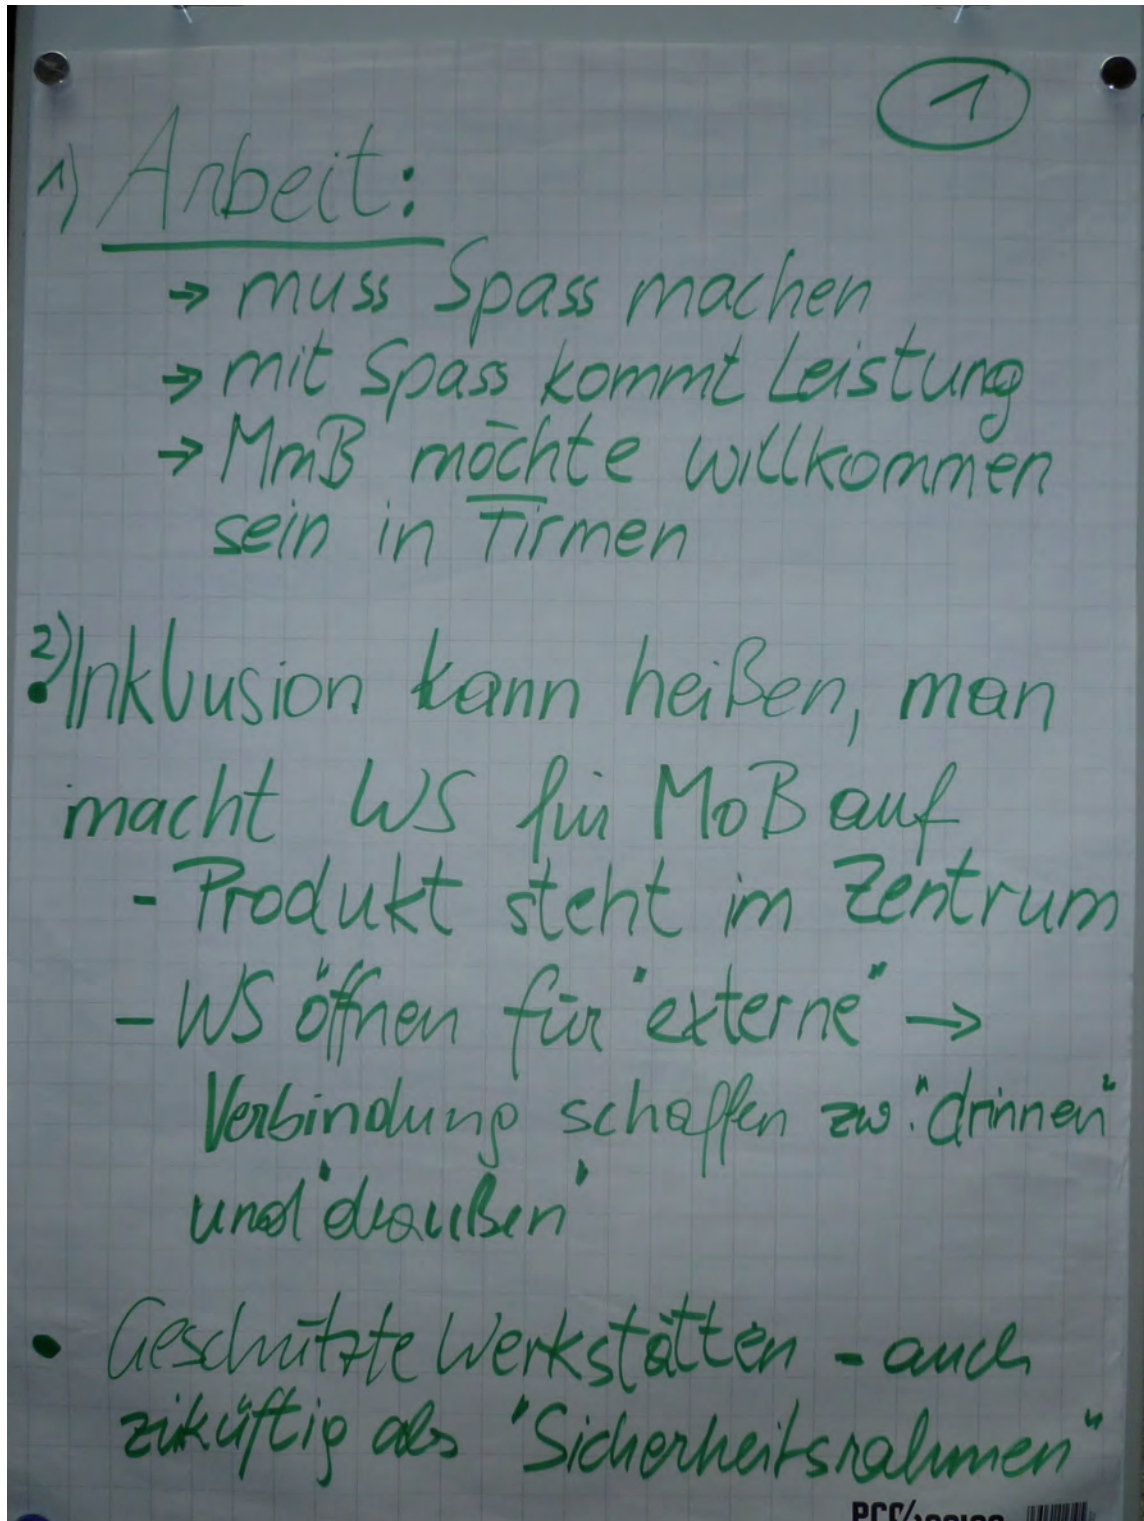 1
1) Arbeit:
→ muss Spass machen
→ mit Spass kommt Leistung
→ MmB möchte willkommen
sein in Firmen
2)
• Inklusion kann heißen, man
macht WS für MoB auf
- Produkt steht im Zentrum
- WS öffnen für "externe" →
Verbindung schaffen zw. "drinnen"
und "draußen"
• Geschützte Werkstätten - auch
zuküftig als "Sicherheitsrahmen"